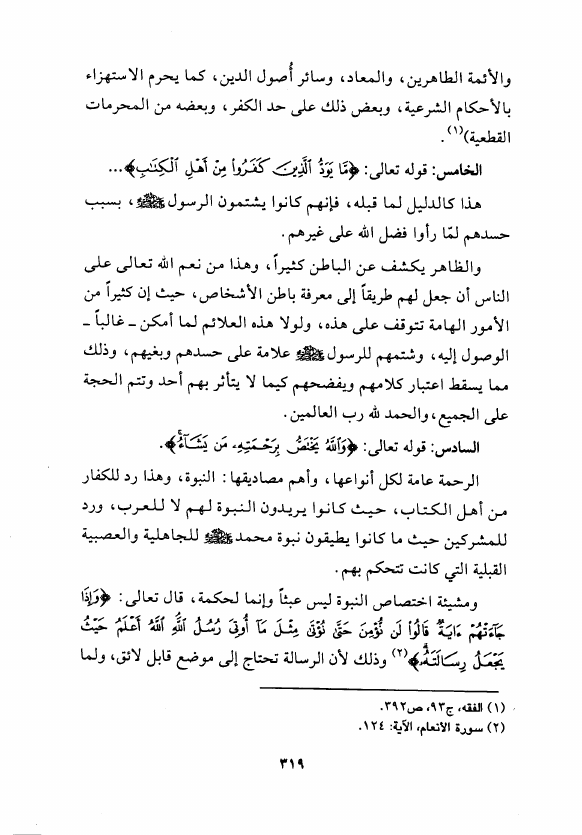 والأئمة الطاهرين، والمعاد، وسائر أُصول الدين، كما يحرم الاستهزاء
بالأحكام الشرعية، وبعض ذلك على حد الكفر، وبعضه من المحرمات
القطعية)(١).
الخامس: قوله تعالى: ﴿مَّا يَوَدُّ الَّذِينَ كَفَرُوا مِنْ أَهْلِ الْكِتَابِ﴾...
هذا كالدليل لما قبله، فإنهم كانوا يشتمون الرسول ﷺ، بسبب
حسدهم لمّا رأوا فضل الله على غيرهم.
والظاهر يكشف عن الباطن كثيراً، وهذا من نعم الله تعالى على
الناس أن جعل لهم طريقاً إلى معرفة باطن الأشخاص، حيث إن كثيراً من
الأمور الهامة تتوقف على هذه، ولولا هذه العلائم لما أمكن ـ غالباً ـ
الوصول إليه، وشتمهم للرسول ﷺ علامة على حسدهم وبغيهم، وذلك
مما يسقط اعتبار كلامهم ويفضحهم كيما لا يتأثر بهم أحد وتتم الحجة
على الجميع، والحمد لله رب العالمين.
السادس: قوله تعالى: ﴿وَاللَّهُ يَخْتَصُّ بِرَحْمَتِهِ مَن يَشَاءُ﴾.
الرحمة عامة لكل أنواعها، وأهم مصاديقها: النبوة، وهذا رد للكفار
من أهل الكتاب، حيث كانوا يريدون النبوة لهم لا للعرب، ورد
للمشركين حيث ما كانوا يطيقون نبوة محمد ﷺ للجاهلية والعصبية
القبلية التي كانت تتحكم بهم.
ومشيئة اختصاص النبوة ليس عبثاً وإنما لحكمة، قال تعالى: ﴿وَإِذَا
جَاءَتْهُمْ ءَايَةٌ قَالُوا لَن نُّؤْمِنَ حَتَّى نُؤْتَى مِثْلَ مَا أُوتِيَ رُسُلُ اللَّهِ اللَّهُ أَعْلَمُ حَيْثُ
يَجْعَلُ رِسَالَتَهُ﴾(٢) وذلك لأن الرسالة تحتاج إلى موضع قابل لائق، ولما
(١) الفقه، ج٩٣، ص٣٩٢.
(٢) سورة الأنعام، الآية: ١٢٤.
٣١٩